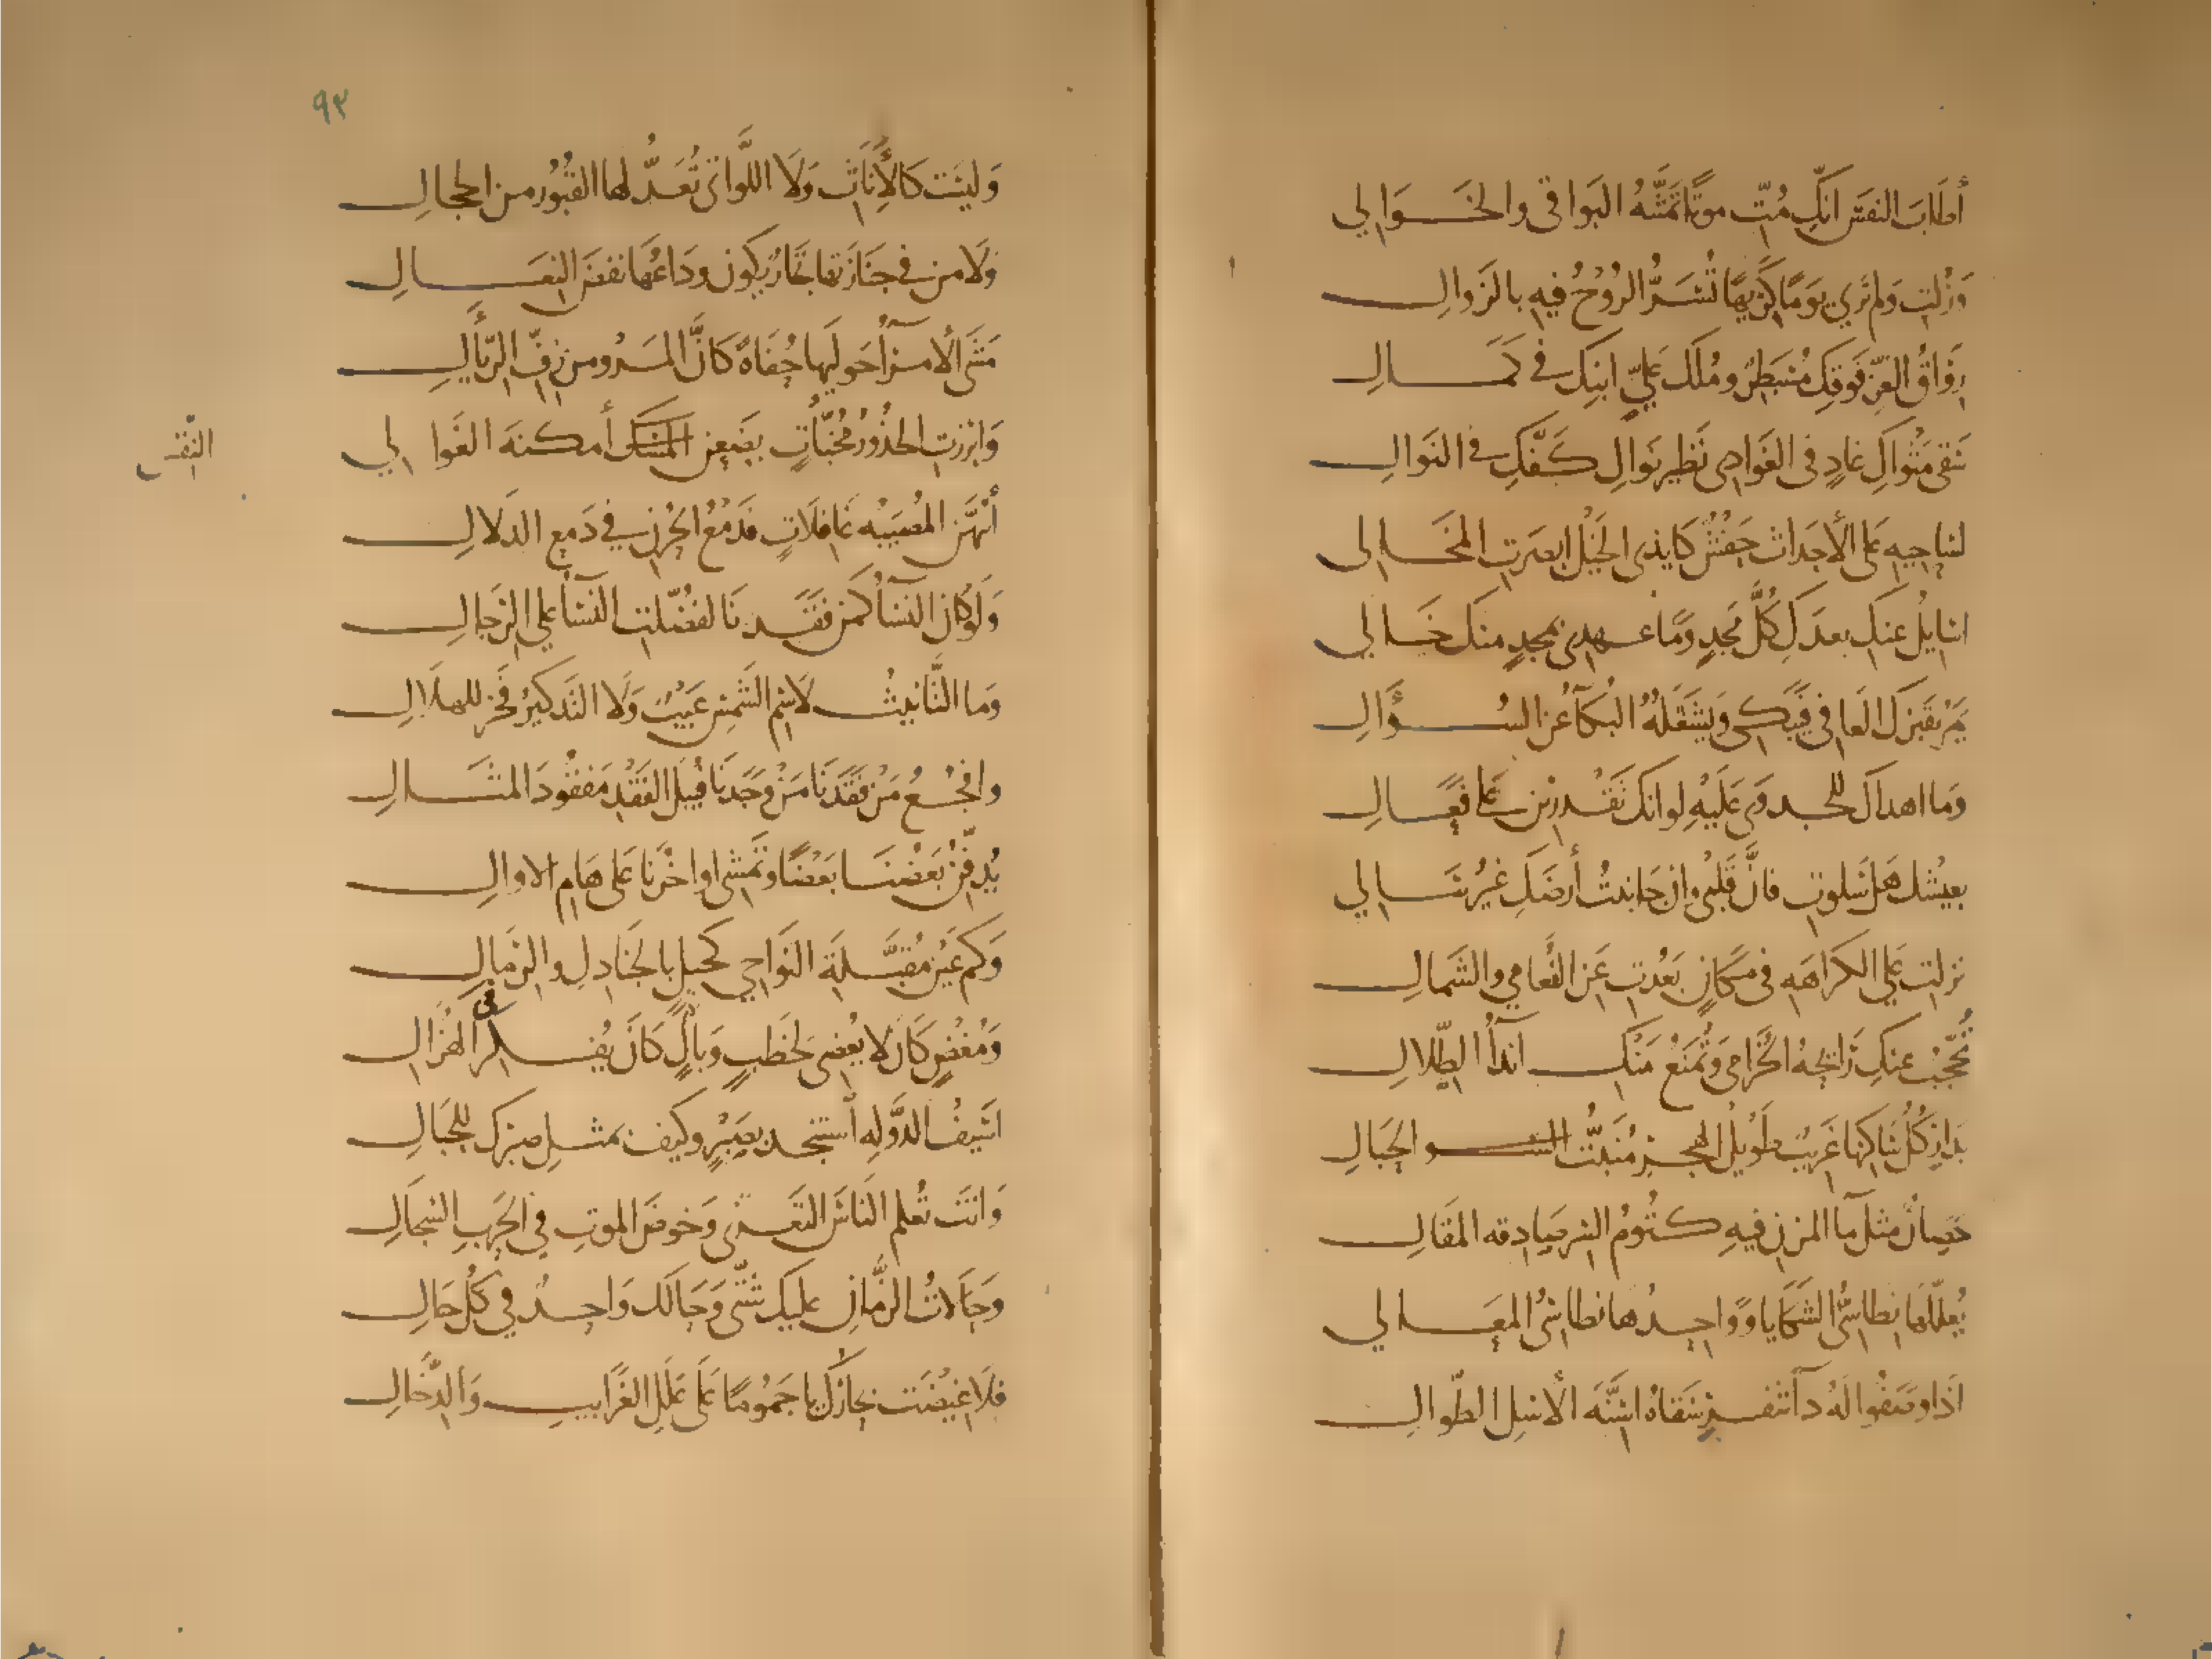 أطَابَ النفسَ انكِ مُتِّ موتًا تمَنَّتهُ البَوَاقى والخَوَالي
وَزُلتِ وَلم تَري يوَمًا كَريهًا تُسَرُّ الرُوْحُ فيهِ بالزَوالِ
رِوَاقُ العِزّ فَوقكِ مُسْبَطِرٌ ومُلكُ عَليّ ابنِكِ في كَمَالِ
سَقى مَثْوَاكِ غادٍ فى الغَوادِى نَظيرُ نَوالِ كَفِّكِ في النَوالِ
لسَاحِيهِ عَلى الأجدَاث حَفْشٌ كَايذى الخَيْلِ ابصَرتِ المخَالى
اسَايلُ عَنكِ بعدَكِ كُلَّ مَجدٍ وَمَا عهدِى بمجدٍ منكَ خَالي
يَمُرُّ بقَبركِ العَافي فَيَبكى وَيَشغَلهُ البُكآءُ عن السُؤَالِ
وَما اهداكِ للجدوَى عَلَيْهِ لو انكِ تَقْدرِينَ عَلى فعَالِ
بعيشك هَل سَلوتِ فانَّ قَلبْى وان جَانبتُ أرضَكِ غيُر سَالي
نزلتِ عَلي الكراهَهِ في مَكانٍ بَعُدتِ عَن النُعَامى والشمالِ
تُحَجّبُ عنكِ رَائحهُ الخُزَامى وَتُمنَعُ منكِ اندآءُ الطِّلالِ
بدَارٍ كُلُّ سَاكِنها غَريبٌ طَوِيْلُ الهجرِ مُنْبَتُّ الحِبَالِ
حَصانٌ مثلُ مآ المزنِ فيهِ كتُومُ السّرِ صَادِقه المقَالِ
يُعلّلهَا نِطاسىُّ الشَكَايا وَوَاحِدُها نطاسىُّ المعَالي
اذَا وصَفُوا لهُ دآءً بثغرٍ سَقاهُ اسنَّهَ الأسَلِ الطّوالِ
٩٣
وَليسَت كَالأِنَاثِ وَلَا اللَّواتى تُعَدُّ لها القبُوُر من الحجالِ
وَلَا من في جنَازَتها تجَارٌ يَكُونُ ودَاعُها نفضَ النعَالِ
مَشَى الأُمَرآءُ حَولَيها حُفَاةً كَانَّ المَروَ من زِفِّ الرّئالِ
وَابرزتِ الخدُورُ مُخبّآتٍ يضَعن أمكنهَ الغَوا لي
النِّقْس
أتتهُنّ المُصيبَهُ غَافِلَاتٍ فَدَمْعُ الحُزنِ في دَمعِ الدلَالِ
وَلَو كَان النسَآءُ كمَن فَقَدنَا لفضُّلت النسَآءُ علي الرِّجَالِ
وَما التَّانِيثُ لاسْمِ الشَمسِ عَيْبٌ وَلَا التَذكيُر فَخرٌ للهلَالِ
وافجُعُ مَنْ فَقَدنَا مَنْ وَجَدنَا قُبيلَ الفَقْدِ مَفقُودَ المثَالِ
يُدَفِّنُ بَعْضُنَا بَعْضًا وتَمْشى اواخرُنا عَلى هَامِ الاوالِ
وَكم عَيْنٍ مُقَبَّلَةِ النَوَاحي كَحيلٍ بالجَنَادِلِ والرّمَالِ
وَمُغْضٍ كَانَ لا يُغضِى لخَطبٍ وَبَالٍ كَانَ يُفكرُ في الهُزَالِ
اسَيفَ الدَّولهِ استنجد بصَبْرٍ وَكيفَ بمثلِ صبرِكَ للجبَالِ
وَانتَ تُعلمُ النَاسَ التَعَزّى وَخوضَ الموتِ في الحَربِ السِجَالِ
وَحَالاتُ الزَّمانِ عليكَ شَتّى وَحَالكَ وَاحدٌ في كُلِ حَالِ
فلَا غيضَت بحَارُكَ يا جَمُومًا عَلَى عَلَلِ الغَرَايبِ وَالدِّخَالِ